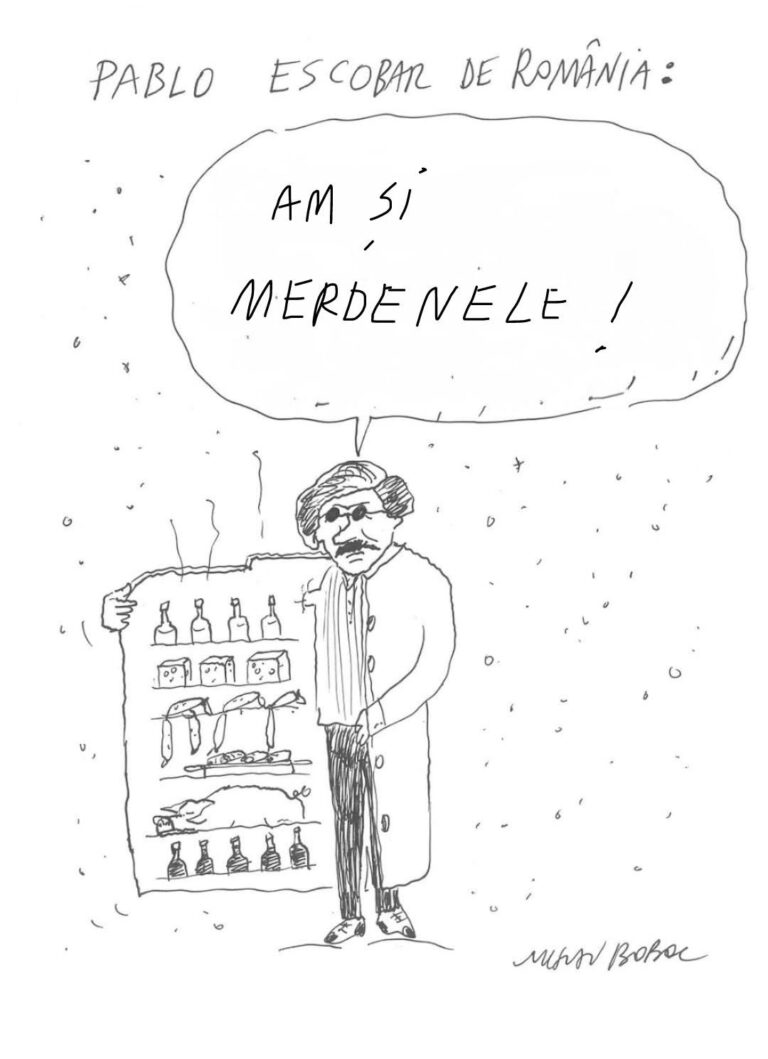 PABLO ESCOBAR DE ROMÂNIA:
AM ȘI
MERDENELE!
BOBOC